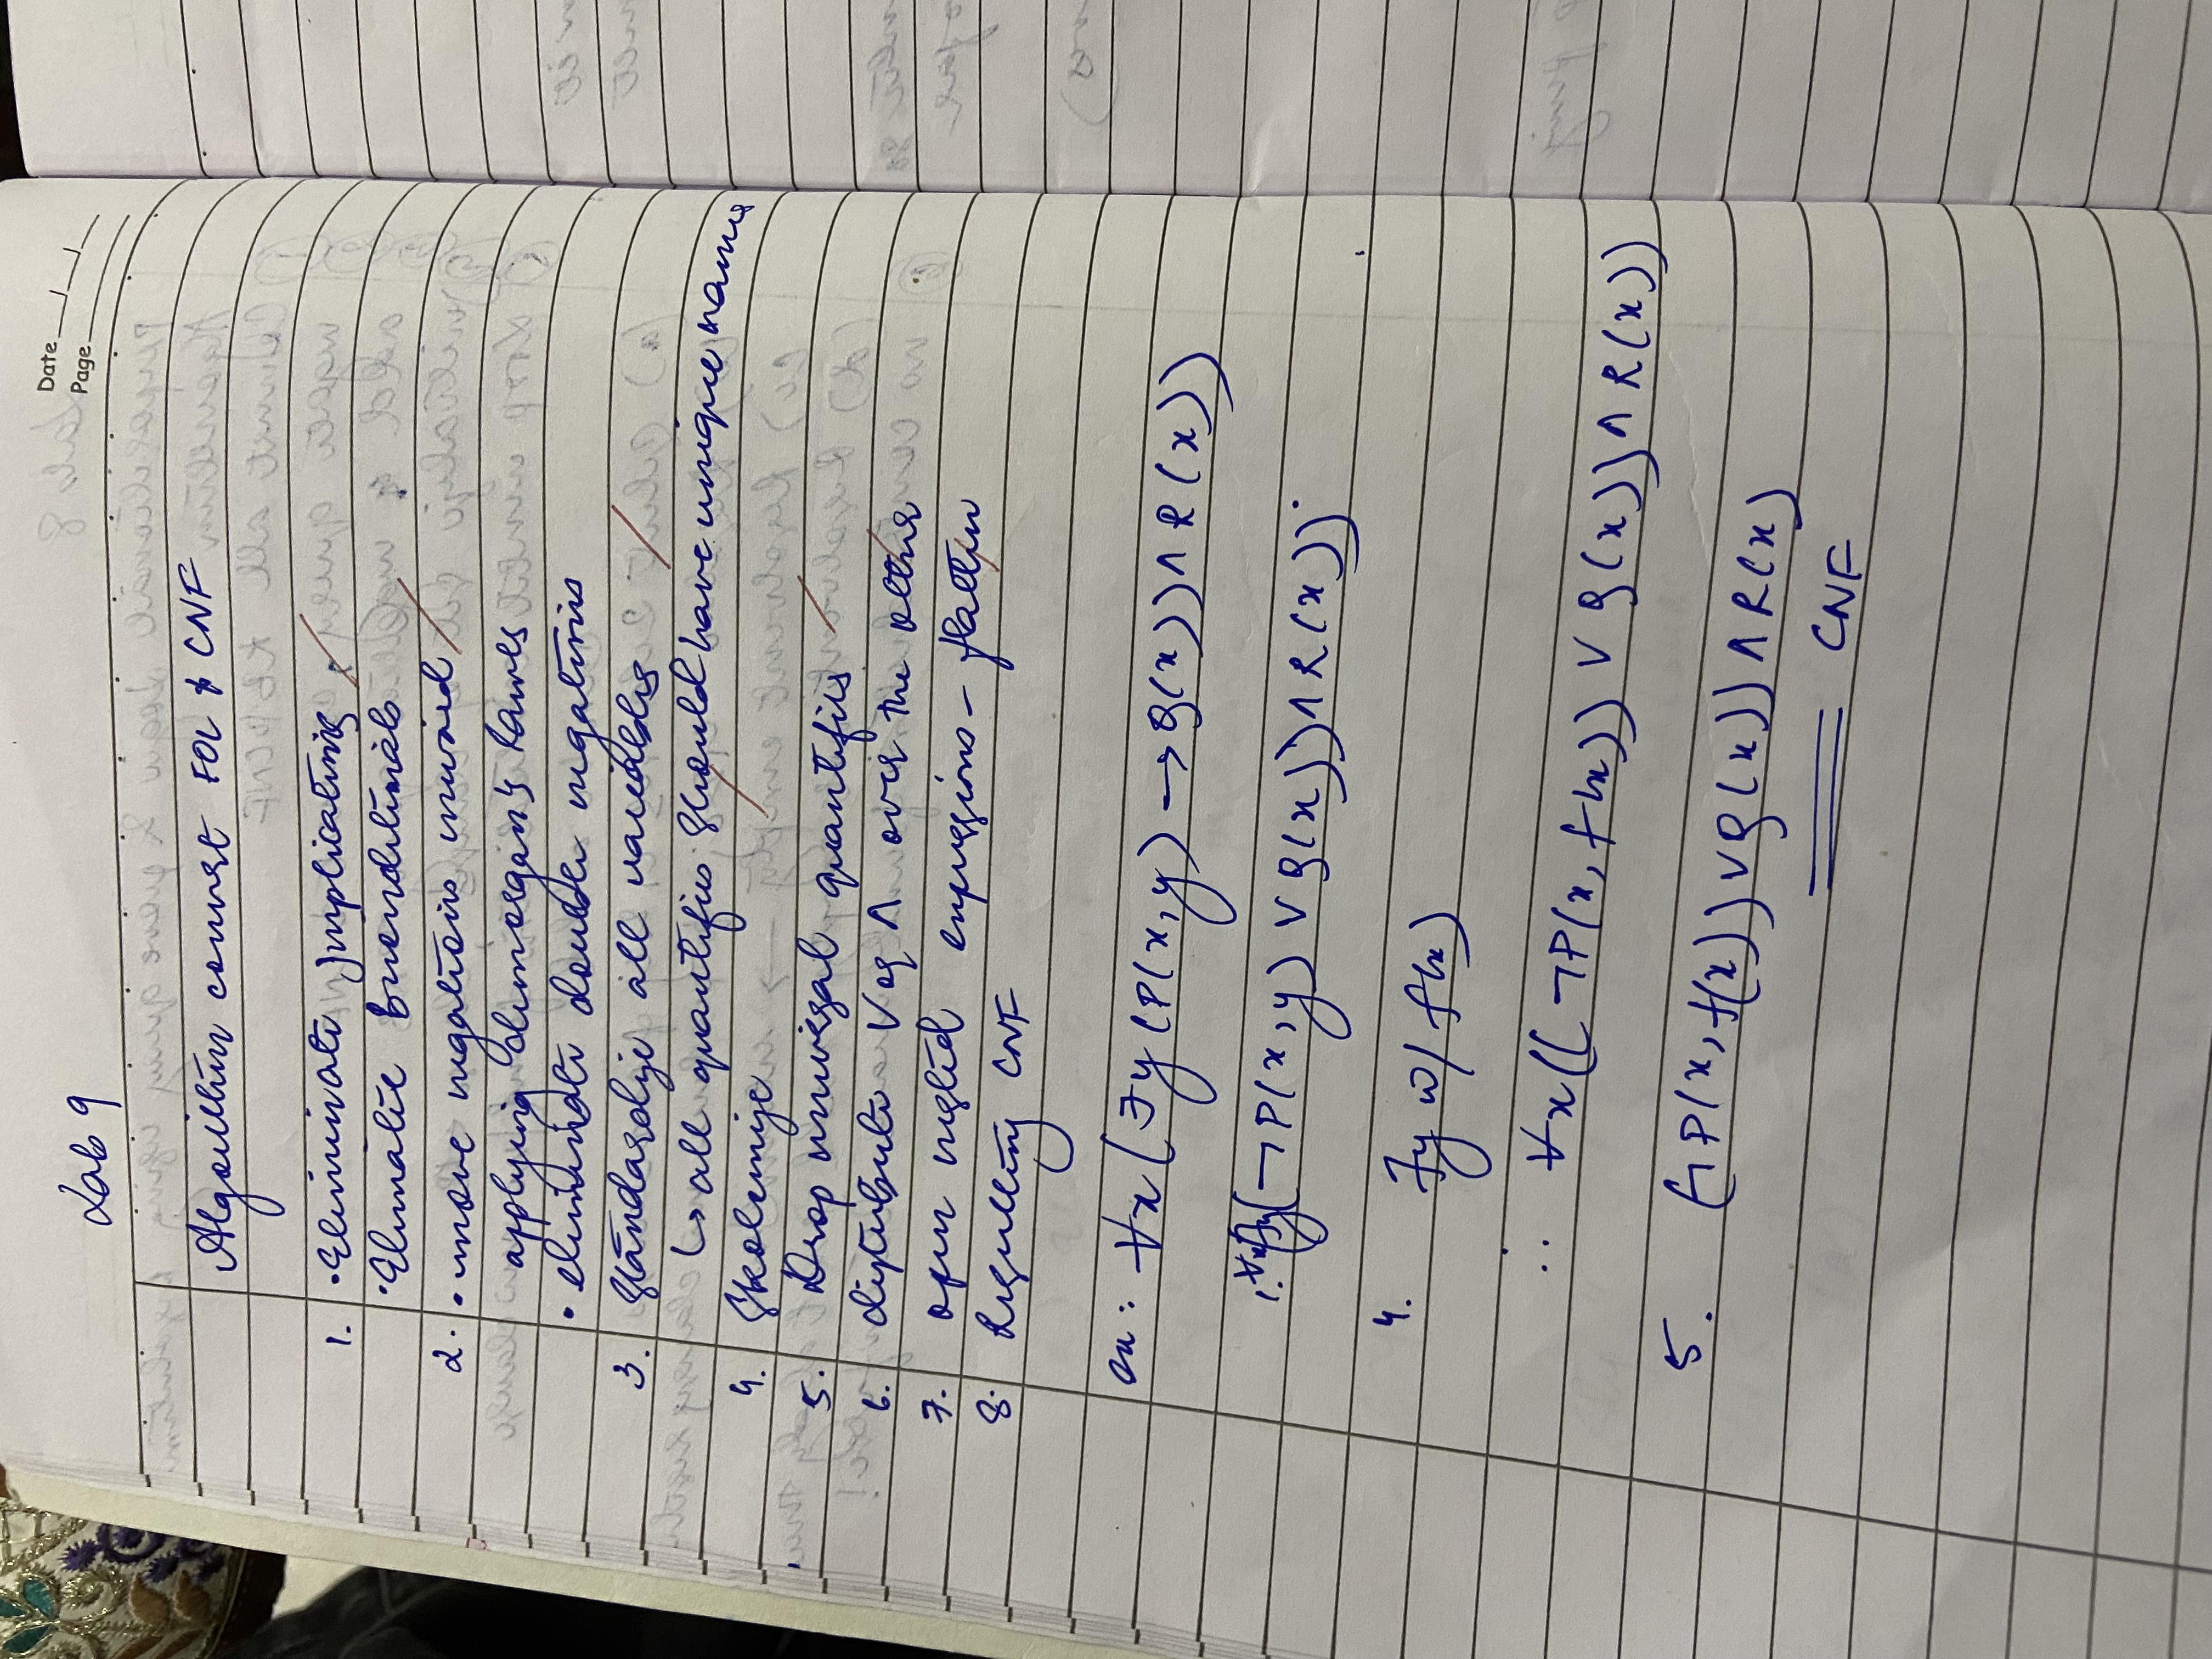 Date
Page
Lab 9
Algorithm convert FOL to CNF
1. • Eliminate Implications
• Elimatie Biconditionals
2. • move negations inward
applying demorgan's lawes
• eliminate double negations
3. Standardize all variables
↳ all quantifies should have unique names
4. Skolemize
5. Drop universal quantifies
6. distribute ∨ or ∧ over the other
7. open nested expressions - flatten
8. Resulting CNF
ex: ∀x(∃y(P(x,y) → Q(x)) ∧ R(x))
1. ∀x(∃y(¬P(x,y) ∨ Q(x)) ∧ R(x))
4. ∃y w/ f(x)
∴ ∀x((¬P(x, f(x)) ∨ Q(x)) ∧ R(x))
5. (¬P(x, f(x)) ∨ Q(x)) ∧ R(x)
CNF